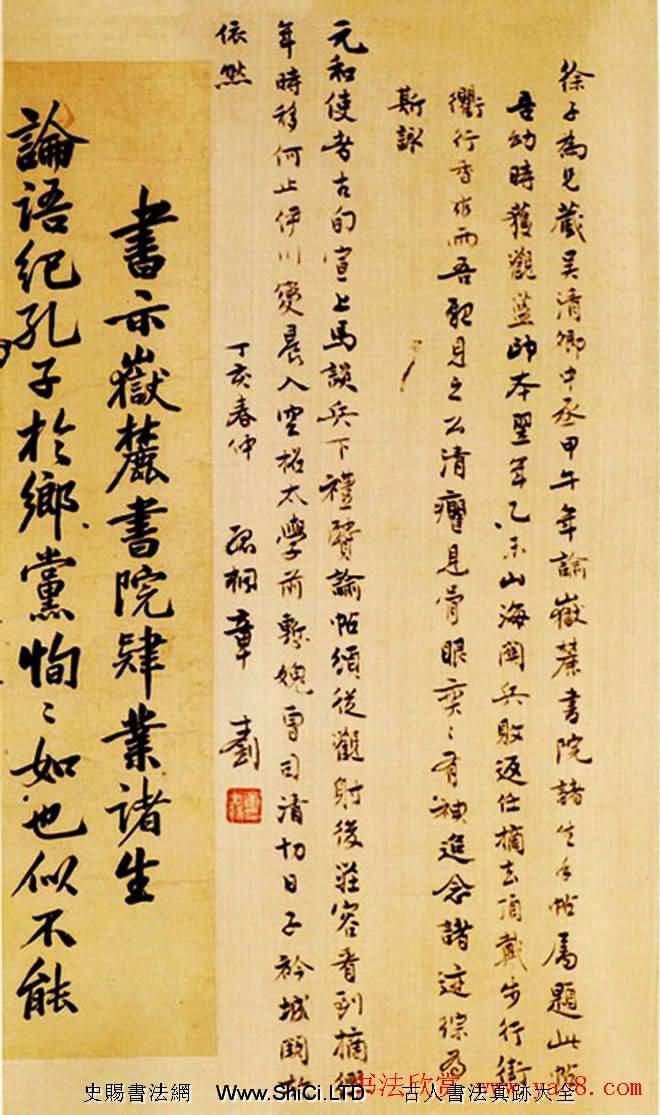 徐子為兄藏吳清卿中丞甲午年諭嶽麓書院諸生手帖屬題此帖
吾幼時獲觀藍帥本翌年乙未山海關兵敗返任摘去頂戴步行街
衢行香皆而吾親見之公清癯見骨眼奕〻有神追念諸迹綜為
斯詠
元和使者古的宣上馬談兵下禮賢諭帖須從觀射後莊容看到摘纓
年時移何止伊川變晨入空招太學前慙媿曹司清切日子衿城闕故
依然
丁亥春仲 孤桐章士釗
書示嶽麓書院肄業諸生
論語紀孔子於鄉黨恂〻如也似不能
史賜書法網 Www.ShiCi.LTD 古人書法真跡大全
书法欣赏 www.yac8.com